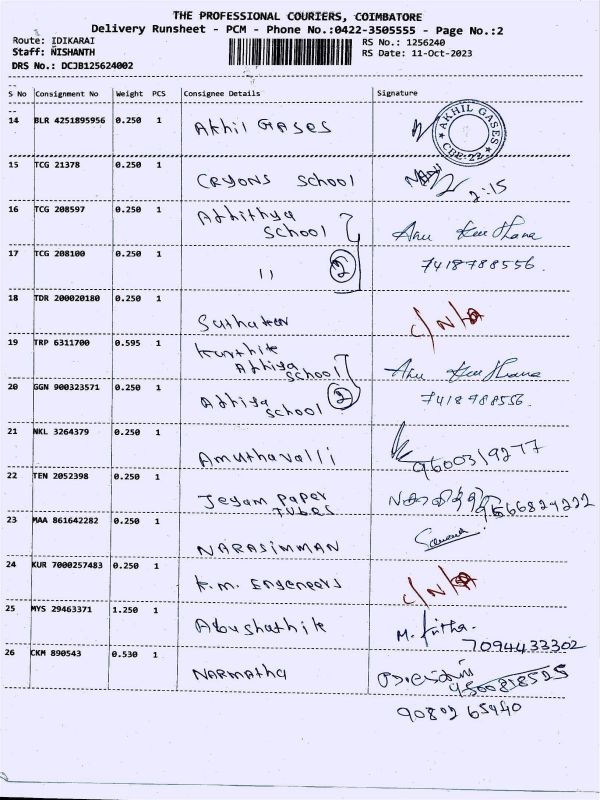 THE PROFESSIONAL COURIERS, COIMBATORE
Delivery Runsheet - PCM - Phone No.:0422-3505555 - Page No.:2
Route: IDIKARAI RS No.: 1256240
Staff: NISHANTH RS Date: 11-Oct-2023
DRS No.: DCJB125624002
S No Consignment No Weight PCS Consignee Details Signature
14 BLR 4251895956 0.250 1 Akhil GASES AKHIL GASES CBE-22
15 TCG 21378 0.250 1 CRYONS School 2:15
16 TCG 208597 0.250 1 Athithya
School Anu
17 TCG 208100 0.250 1 11 2 7418788556.
18 TDR 200020180 0.250 1 C/N/A
19 TRP 6311700 0.595 1 Athiya
School Anu
20 GGN 900323571 0.250 1 Athiya
School 2 7418788556.
21 NKL 3264379 0.250 1 Amuthavalli 9600319277
22 TEN 2052398 0.250 1 Jeyam paper
Tubes
23 MAA 861642282 0.250 1 NARASIMMAN
24 KUR 7000257483 0.250 1 K.M. Engeneers C/N/A
25 MYS 29463371 1.250 1 Abushathik M.
7094433302
26 CKM 890543 0.530 1 NARMAtha
90802 65940